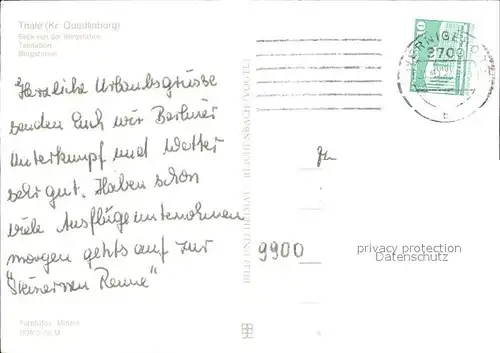 Thale (Kr. Quedlinburg)
Blick von der Bergstation
Talstation
Bergstation
Herzliche Urlaubsgrüsse
senden Euch wir Berliner
Unterkunft und Wetter
sehr gut. Haben schon
viele Ausflüge unternohmen
morgen gehts auf zur
"Steinernen Renne"
BILD UND HEIMAT REICHENBACH
WERNIGERODE
3700
b
10
9900
privacy protection
Datenschutz